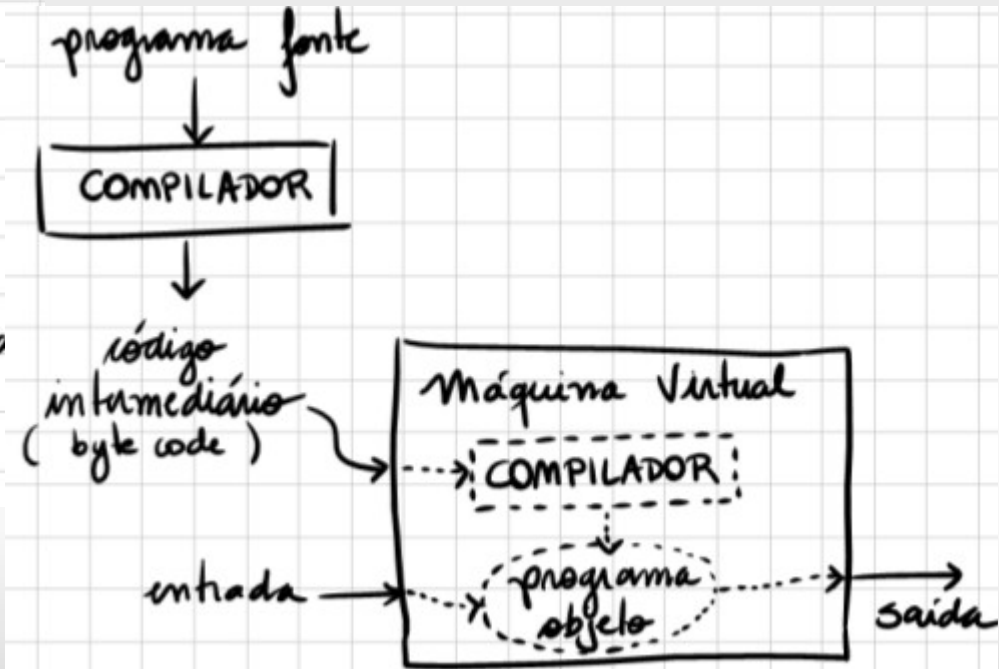 programa fonte
COMPILADOR
código
intermediário
( byte code )
Máquina Virtual
COMPILADOR
entrada
programa
objeto
saída